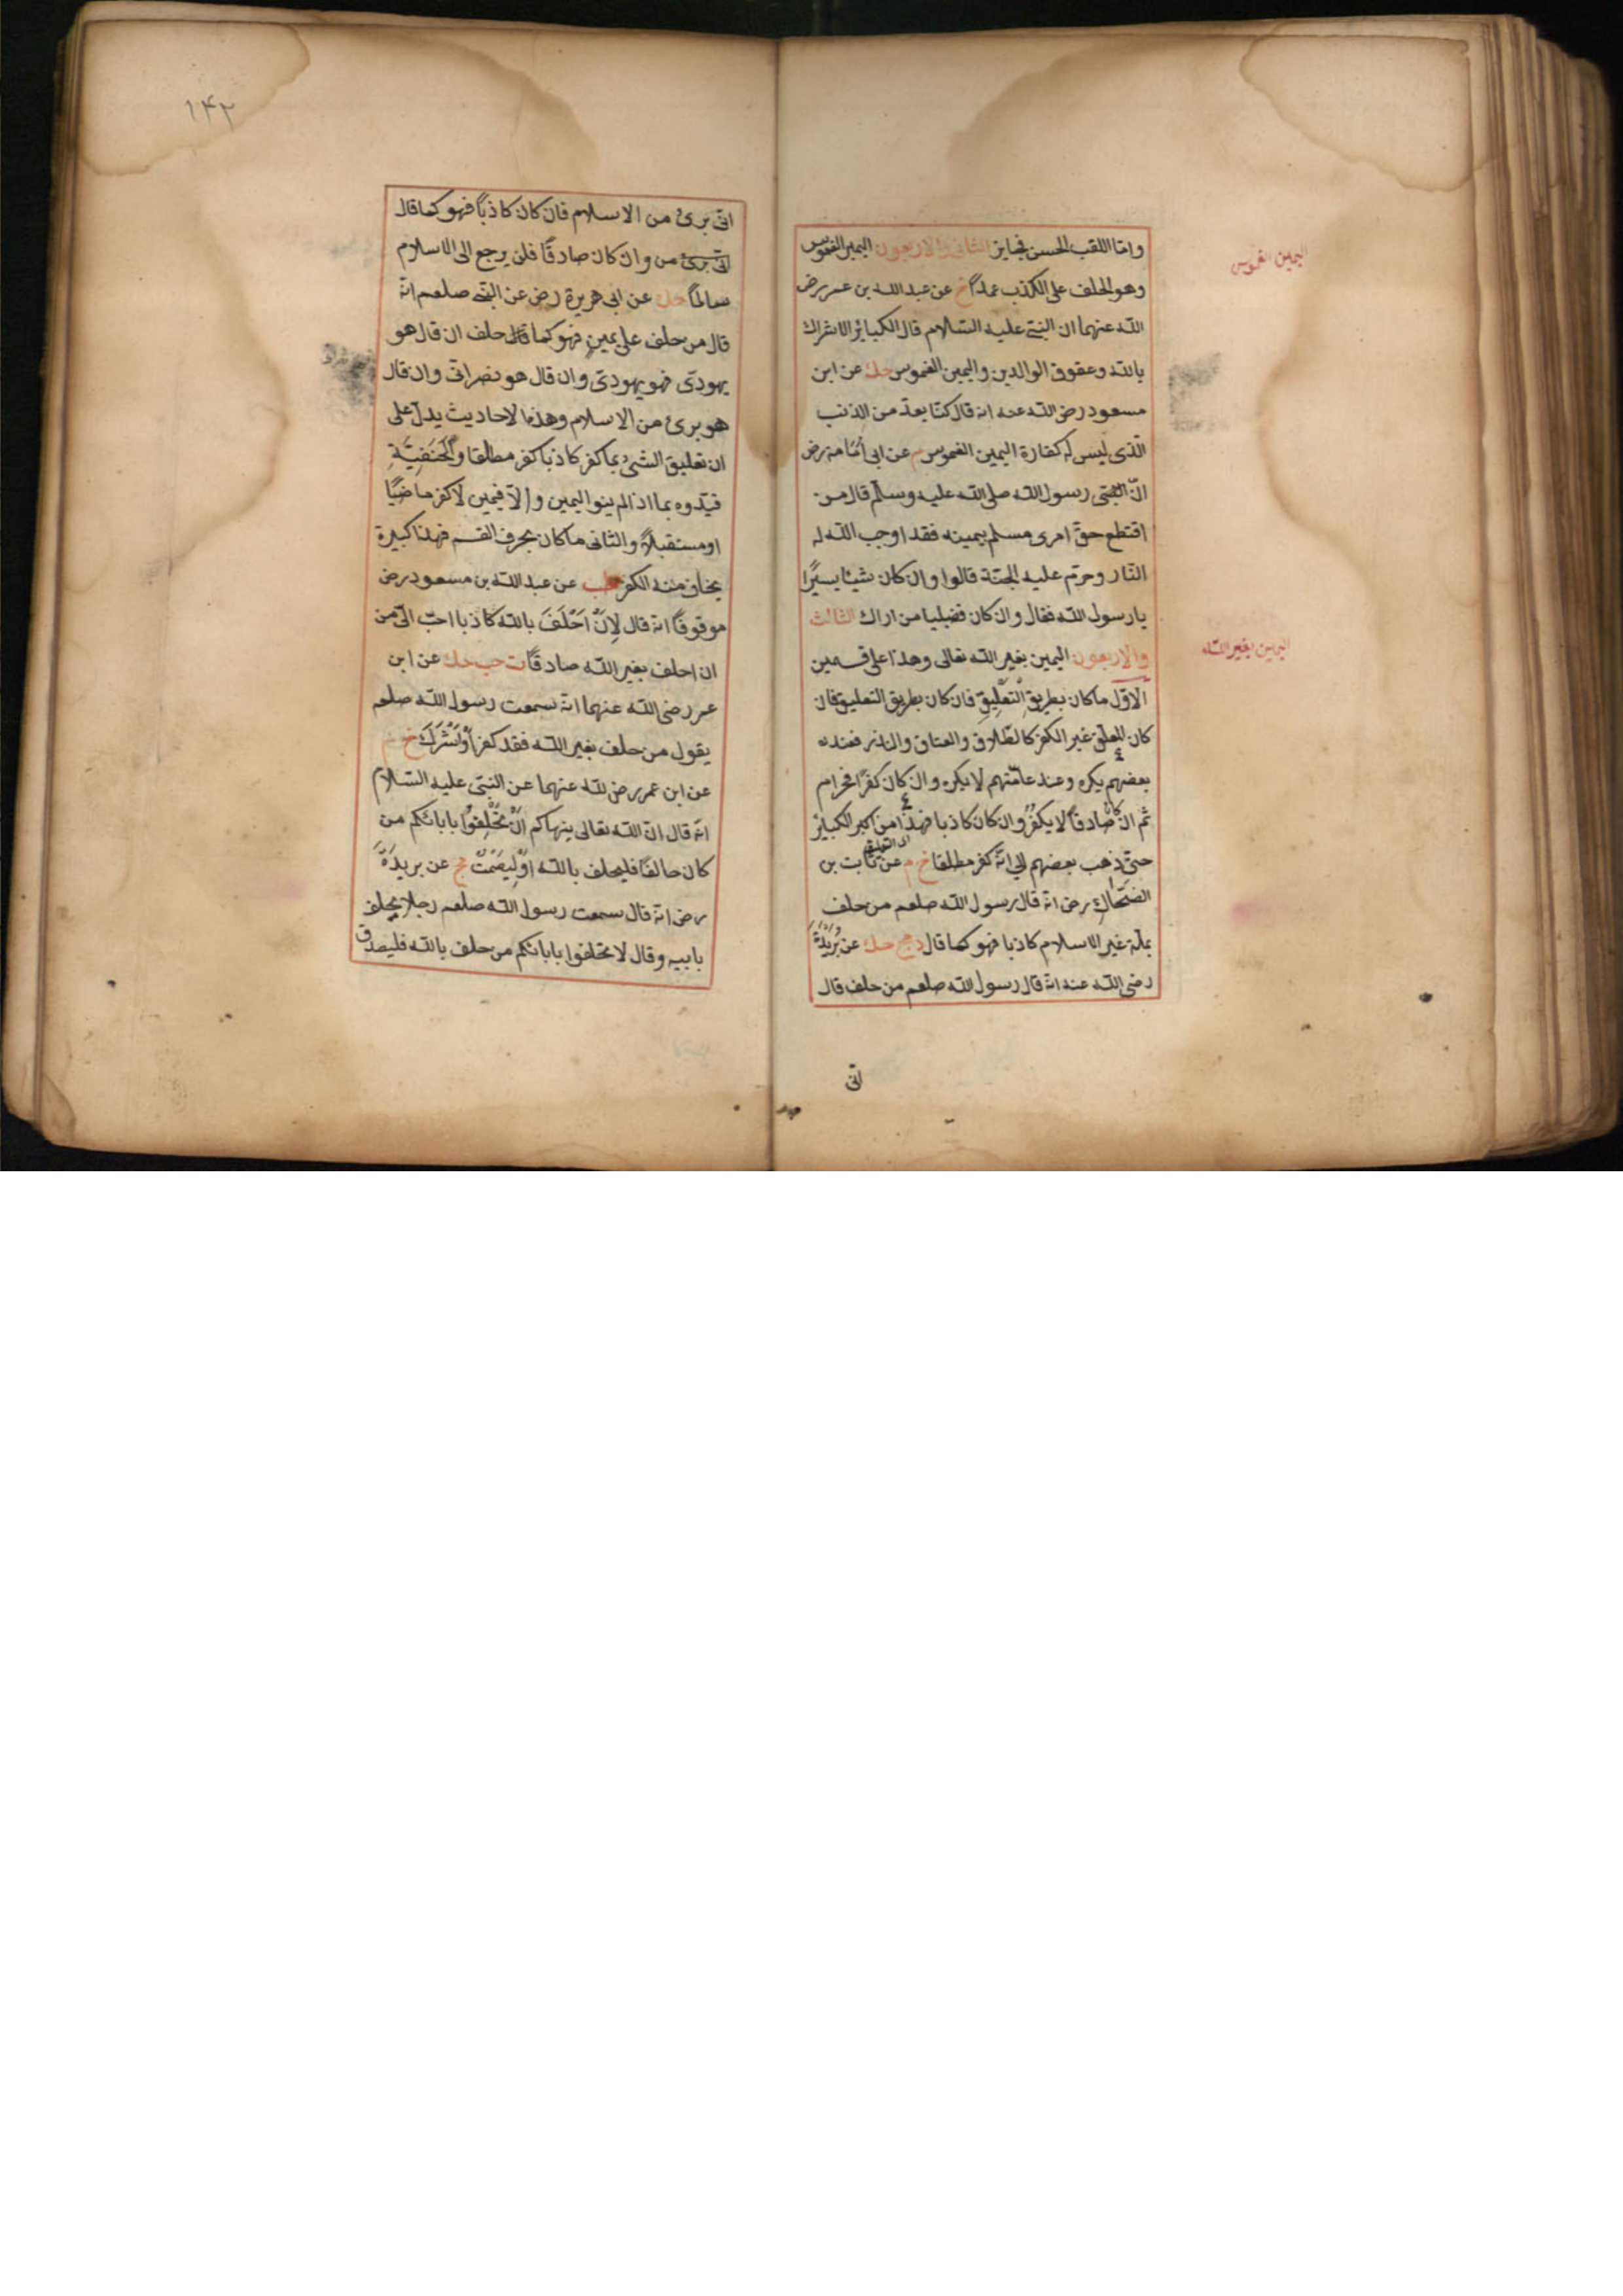 واما اللقب الحسن فجايز الثانى والاربعون اليمين الغموس
اليمين الغموس
وهو الحلف على الكذب عمدًا خ عن عبد الله بن عمر رض
الله عنهما ان النبى عليه السّلام قال الكبائر الاشراك
بالله وعقوق الوالدين واليمين الغموس حك عن ابن
مسعود رض الله عنه انه قال كنّا نعدّ من الذنب
الّذى ليس له كفارة اليمين الغموس م عن ابى اُمامة رض
انّ رسول الله صلى الله عليه وسلّم قال من
اقتطع حقّ امرى مسلم بيمينه فقد اوجب الله له
النّار وحرّم عليه الجنّة قالوا وان كان شيئا يسيرًا
يا رسول الله فقال وان كان قضيبا من اراك الثالث
والاربعون اليمين بغير الله تعالى وهذا على قسمين
اليمين بغير الله
الاوّل ما كان بطريق التعْلِيقِ فان كان بطريق التعليق فان
كان المعلق غير الكفر كالطّلاق والعتاق والنذر فعند
بعضهم يكره وعند عامّتهم لا يكره وان كان كفرًا فحرام
ثم ان كان صادقًا لا يكفُرُ وان كان كاذبا فهذا من اكبر الكبائر
حتى ذهب بعضهم الى انّه كفر مطلقا خ م عن ثابت بن
الضحّاك رض انه قال رسول الله صلعم من حلف
بملّة غير الاسلام كاذبا فهو كما قال د مج حك عن بُرَيْدَةَ
رضى الله عنه انه قال رسول الله صلعم من حلف قال
انى
١٤٢
انى برئ من الاسلام فان كان كاذبًا فهو كما قال
من وان كان صادقًا فلن يرجع الى الاسلام
سالمًا حك عن ابى هريرة رض عن النبى صلعم انّه
قال من حلف على يمين فهو كما حلف ان قال هو
يهودى فهو يهودى وان قال هو نصرانى وان قال
هو برئ من الاسلام وهذه الاحاديث يدلّ على
ان تعليق الشئ بما كفر كاذبا كفر مطلقا والْحَنَفِيَّةِ
قيّدوه بما اذا لم ينو اليمين والّا فيمين لا كفر ماضيًا
او مستقبلاً والثانى ما كان بحرف القسم فهذا كبيرة
يخاف منه الكفر طب عن عبد الله بن مسعود رض
موقوفًا انه قال لِاَنْ اَحْلَفَ بالله كاذبا احبّ الىّ من
ان احلف بغير الله صادقًا ت حب حك عن ابن
عمر رضى الله عنهما انه سمعت رسول الله صلعم
يقول من حلف بغير الله فقد كفر اَوْ اَشْرَكَ خ م
عن ابن عمر رض الله عنهما عن النبى عليه السّلام
انه قال انّ الله تعالى ينهاكم اَنْ تَحْلِفُوا بابائكم من
كان حالفًا فليحلف بالله اَوْ لِيَصْمُتْ مج عن بريدَةَ
رض انه قال سمعت رسول الله صلعم رجلا يحلف
بابيه وقال لا تحلفوا بابائكم من حلف بالله فليصدق